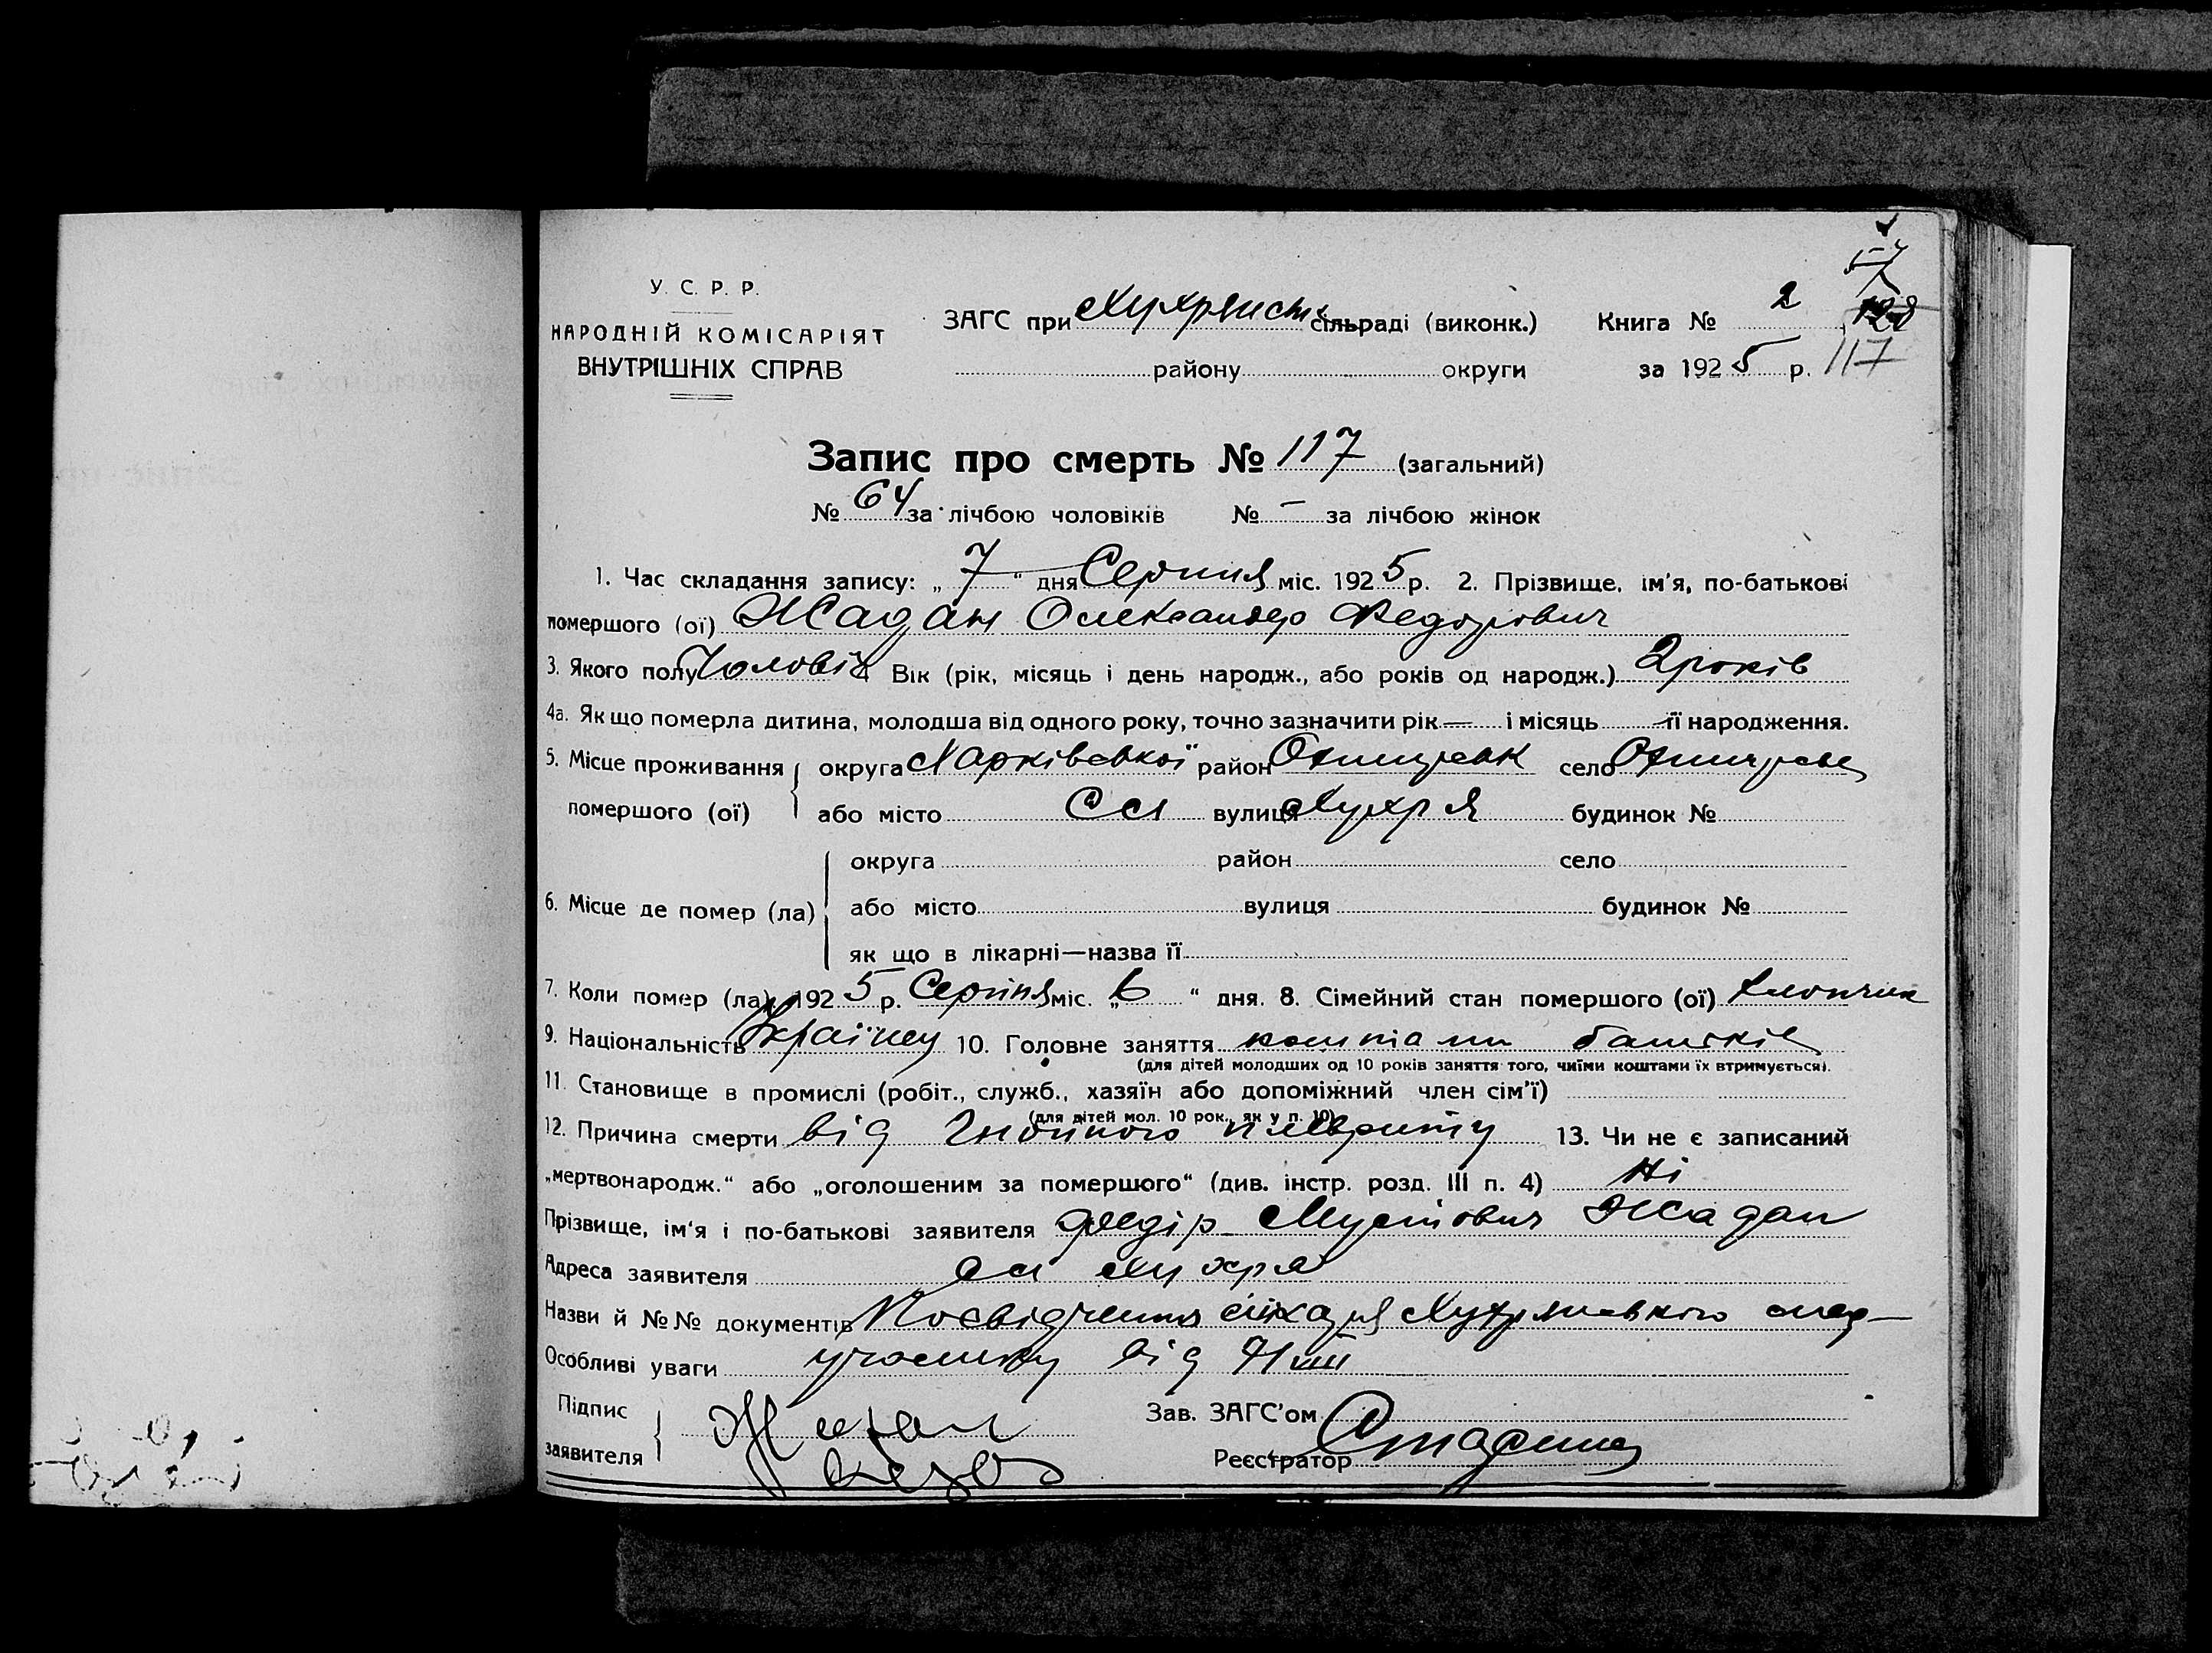 У. С. Р. Р.
НАРОДНІЙ КОМІСАРІЯТ
ВНУТРІШНІХ СПРАВ
ЗАГС при Хухрянск. сільраді (виконк.)
району округи
Книга № 2
за 1925 р. 117
Запис про смерть № 117 (загальний)
№ 64 за лічбою чоловіків № — за лічбою жінок
1. Час складання запису: „7“ дня Серпня міс. 1925 р. 2. Прізвище, ім'я, по-батькові
помершого (ої) Жадан Олександер Федорович
3. Якого полу Чоловіч 4 Вік (рік, місяць і день народж., або років од народж.) 2 років
4а. Як що померла дитина, молодша від одного року, точно зазначити рік — і місяць — її народження.
5. Місце проживання помершого (ої) округа Харківської район Охтирськ село
або місто вулиця Хухря будинок №
6. Місце де помер (ла) округа район село
або місто вулиця будинок №
як що в лікарні—назва її
7. Коли помер (ла) 1925 р. Серпня міс. „6“ дня. 8. Сімейний стан помершого (ої) хлопчик
9. Національність Українец 10. Головне заняття коштами батьків
(для дітей молодших од 10 років заняття того, чиїми коштами їх втримується).
11. Становище в промислі (робіт., служб., хазяїн або допоміжний член сім'ї)
(для дітей мол. 10 рок., як у п. 10)
12. Причина смерти від гнойного плевриту 13. Чи не є записаний
„мертвонародж.“ або „оголошеним за помершого“ (див. інстр. розд. III п. 4) Ні
Прізвище, ім'я і по-батькові заявителя Федір Жадан
Адреса заявителя Хухря
Назви й №№ документів Посвідчення Хухрянського мед-
Особливі уваги участку від
Підпис заявителя Жадан
Зав. ЗАГС'ом
Реєстратор